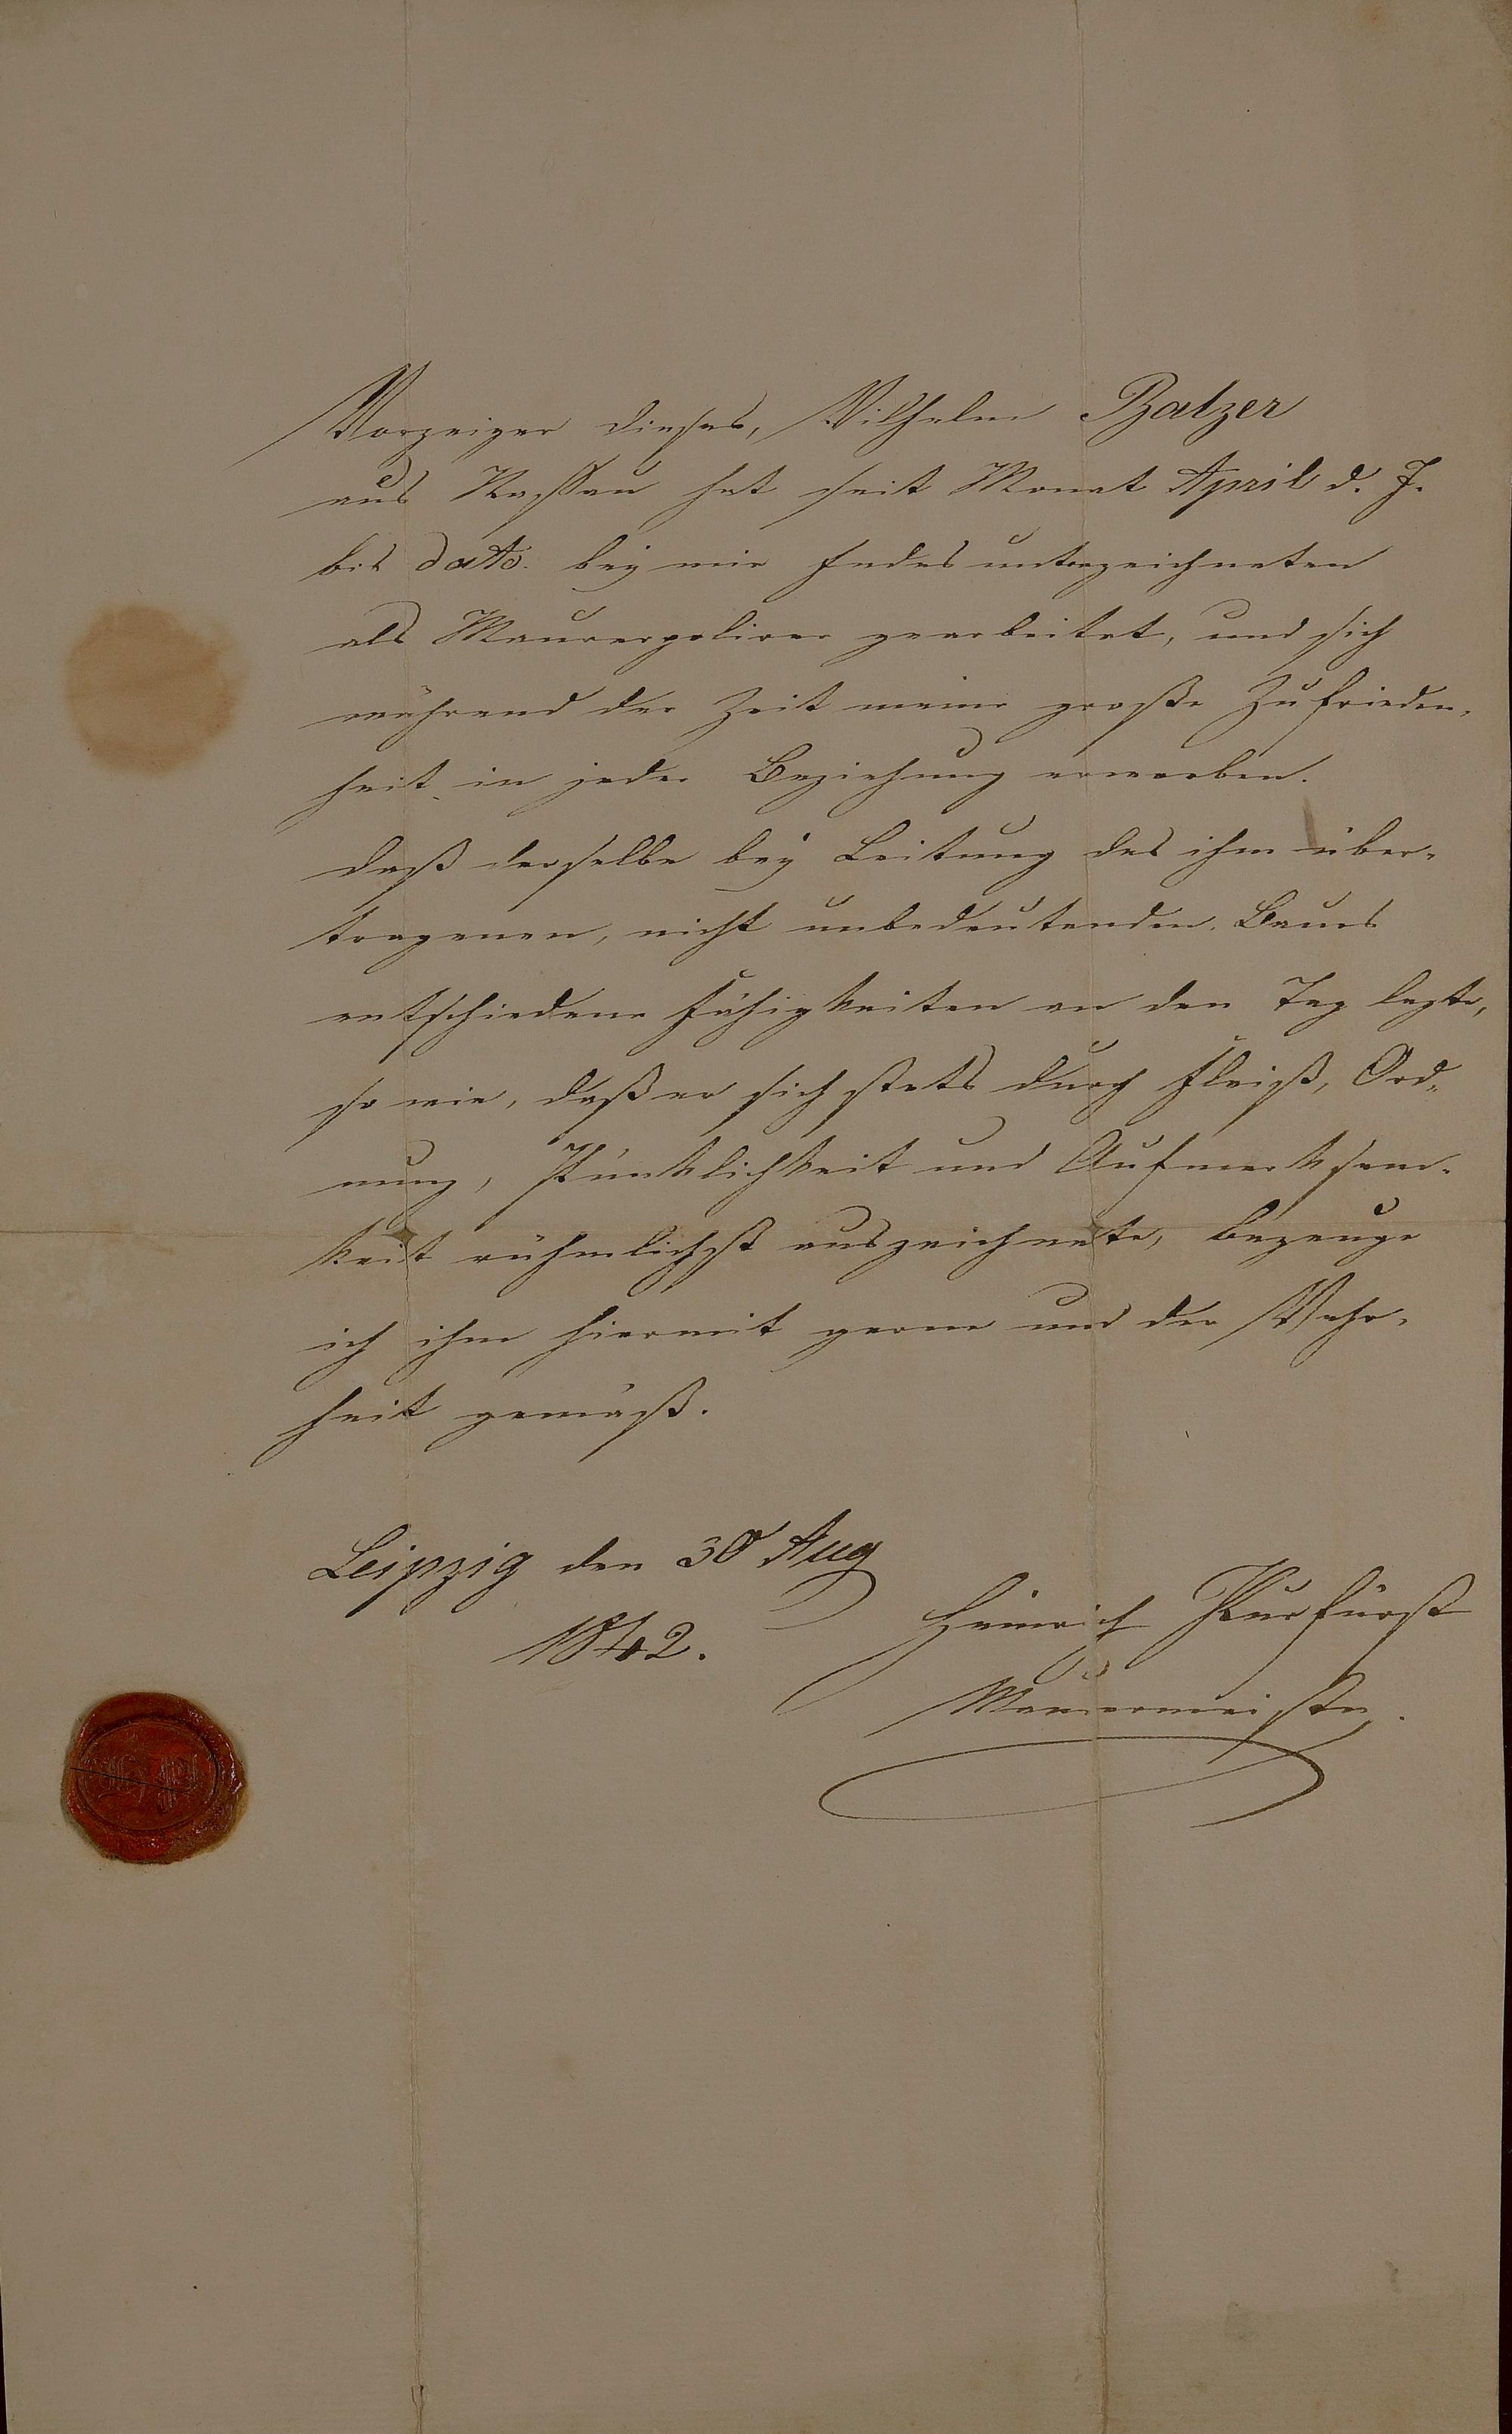 Vorzeiger dieses, Wilhelm Balzer
aus Nassau hat seit Monat April d. J.
bis dato. bey mir Endesunterzeichneten
als Maurerpolirer gearbeitet, und sich
während der Zeit meine große Zufrieden-
heit in jeder Beziehung erworben.
Daß derselbe bey Leitung des ihm über-
tragenen, nicht unbedeutenden Baues
entschiedene Fähigkeiten an den Tag legte,
so wie, daß er sich stets durch Fleiß, Ord-
nung, Pünktlichkeit und Aufmerksam-
keit rühmlichst auszeichnete, bezeuge
ich ihm hiermit gerne und der Wahr-
heit gemäß.
Leipzig den 30 Aug
1842.
Heinrich Kurfürst
Maurermeister.